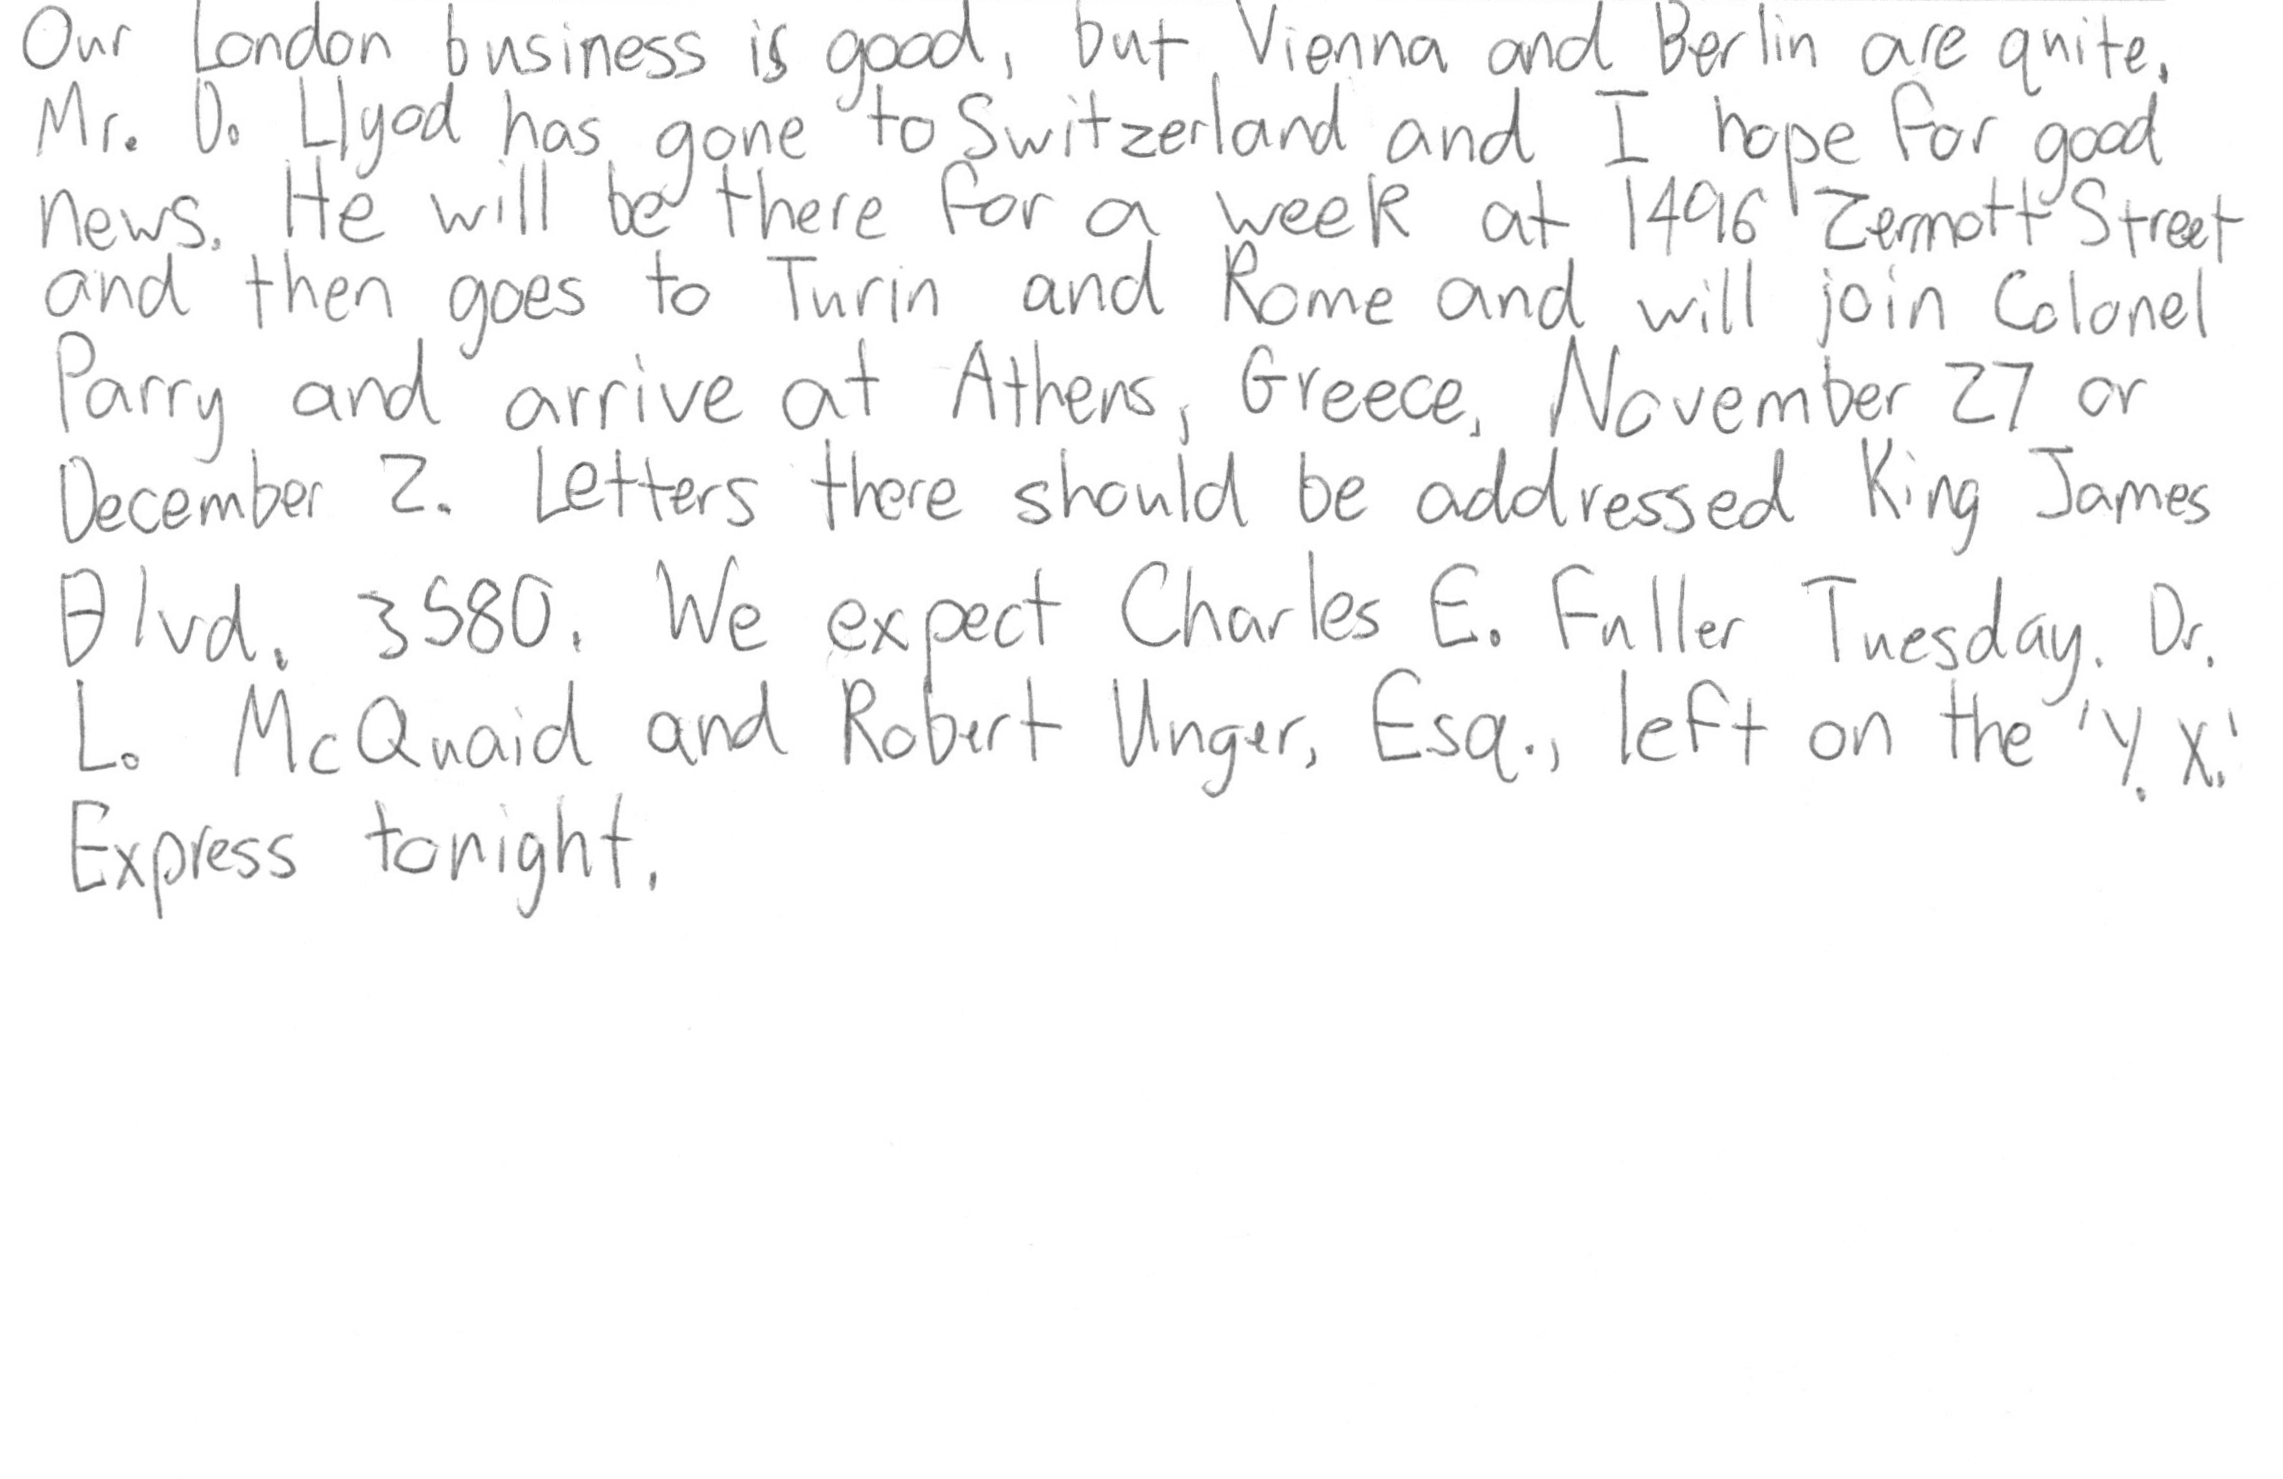 Our London business is good, but Vienna and Berlin are quite.
Mr. D. Llyod has gone to Switzerland and I hope for good
news. He will be there for a week at 1496 Zermott Street
and then goes to Turin and Rome and will join Colonel
Parry and arrive at Athens, Greece, November 27 or
December 2. Letters there should be addressed King James
Blvd. 3580. We expect Charles E. Fuller Tuesday. Dr.
L. McQuaid and Robert Unger, Esq., left on the 'Y. X.'
Express tonight.